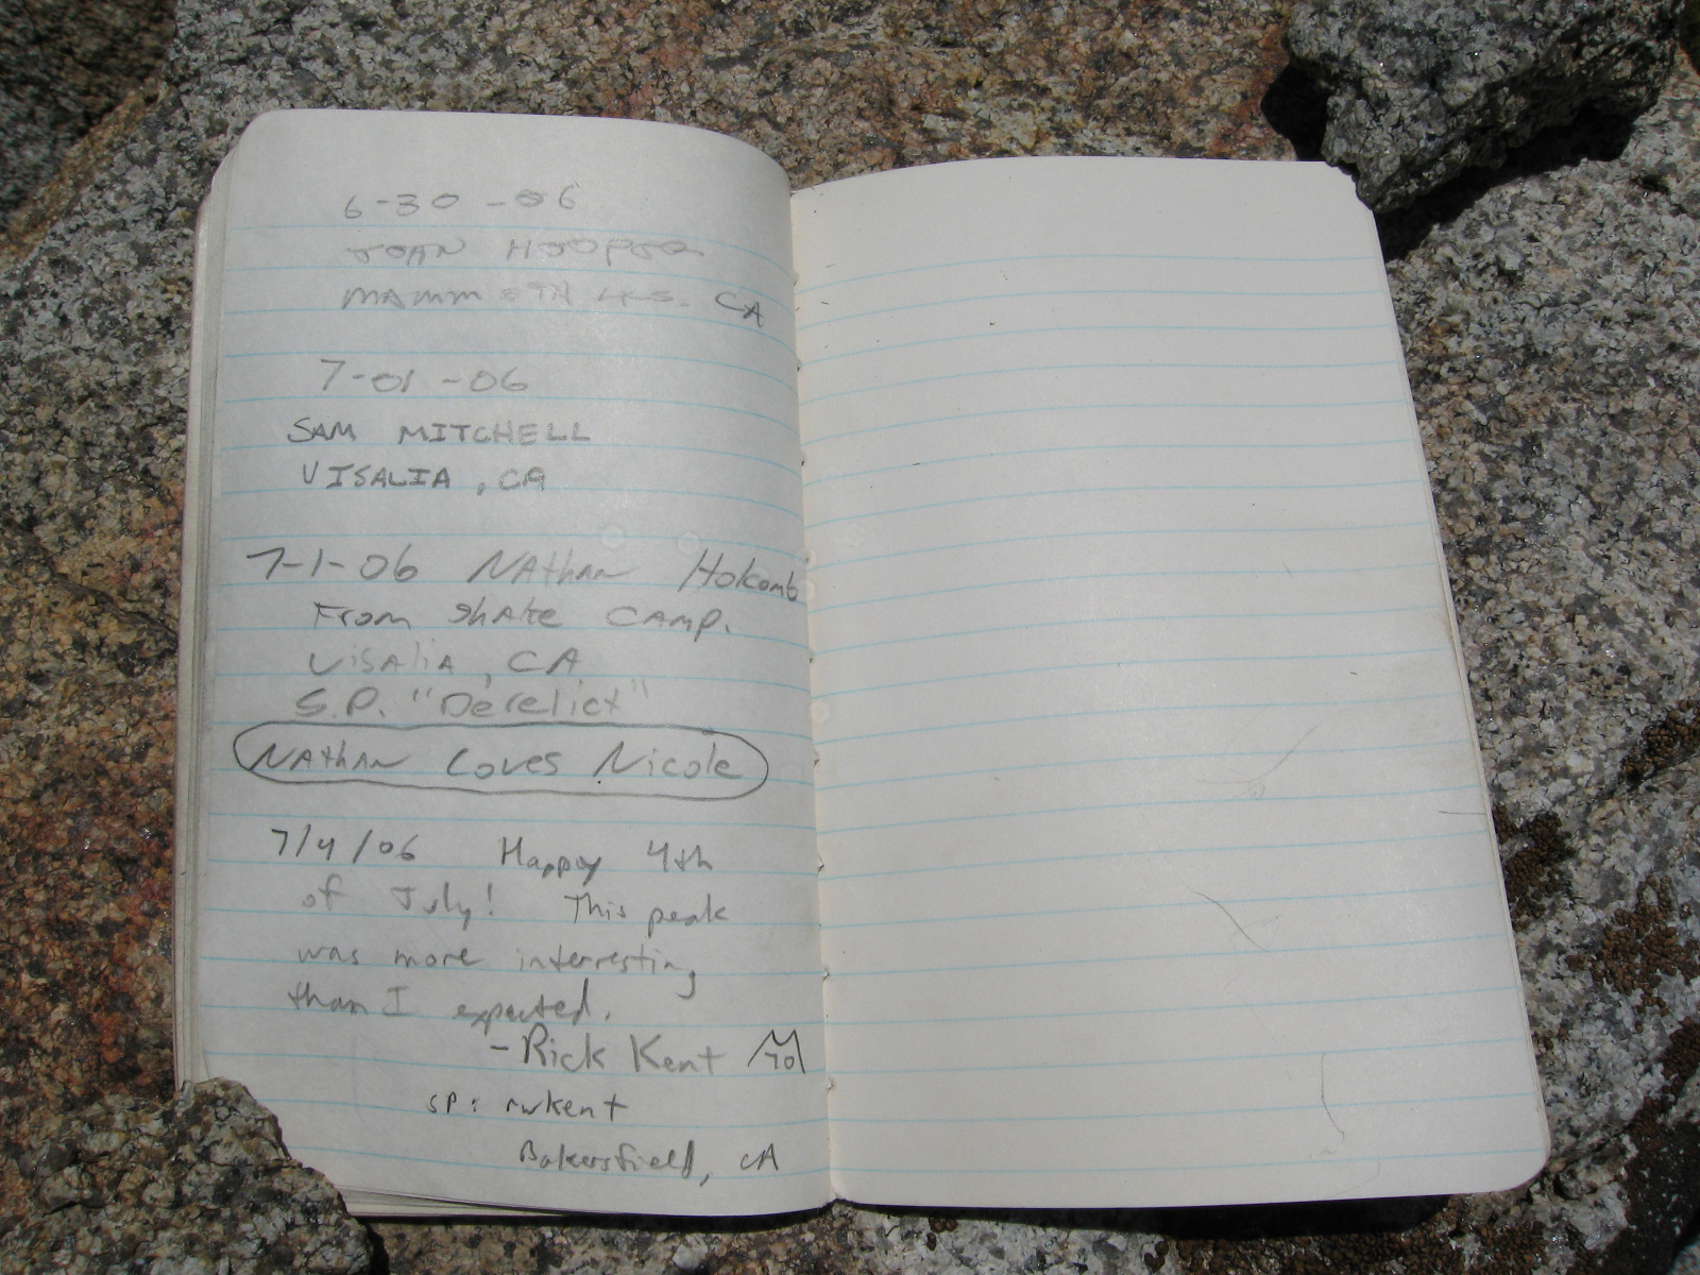 6-30-06
JOAN HOOPER
MAMMOTH LKS. CA
7-01-06
SAM MITCHELL
VISALIA, CA
7-1-06 Nathan Holcomb
From Skate CAMP.
Visalia, CA
S.P. "Derelict"
Nathan Loves Nicole
7/4/06 Happy 4th
of July! This peak
was more interresting
than I expected.
- Rick Kent
SP: rwkent
Bakersfield, CA